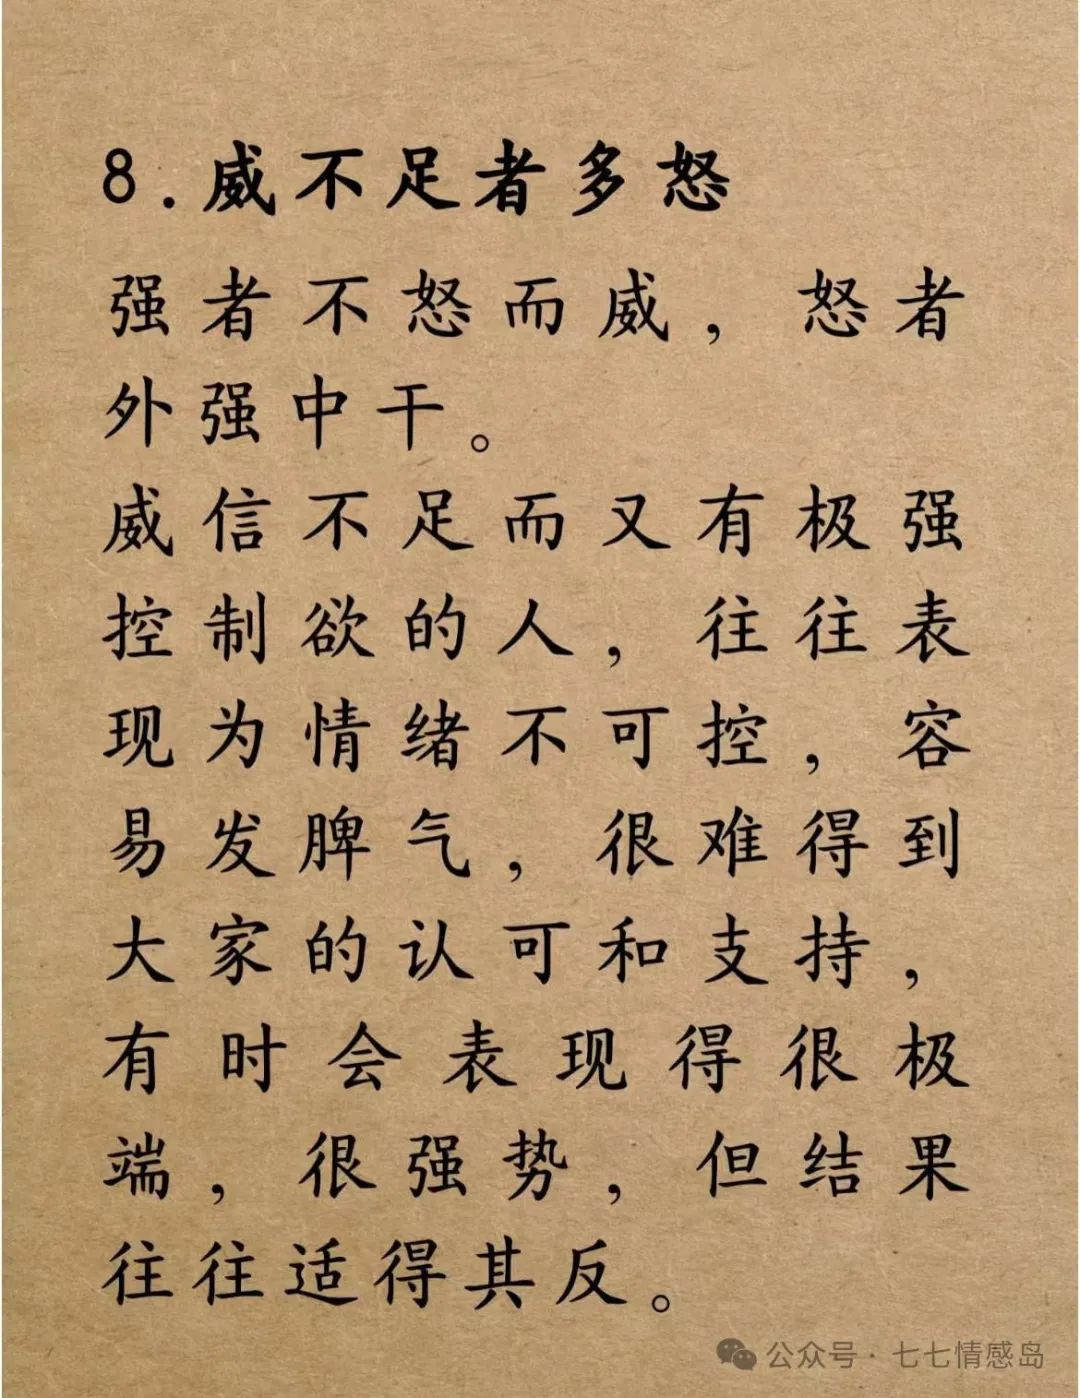 8.威不足者多怒
强者不怒而威，怒者
外强中干。
威信不足而又有极强
控制欲的人，往往表
现为情绪不可控，容
易发脾气，很难得到
大家的认可和支持，
有时会表现得很极
端，很强势，但结果
往往适得其反。
公众号·七七情感岛